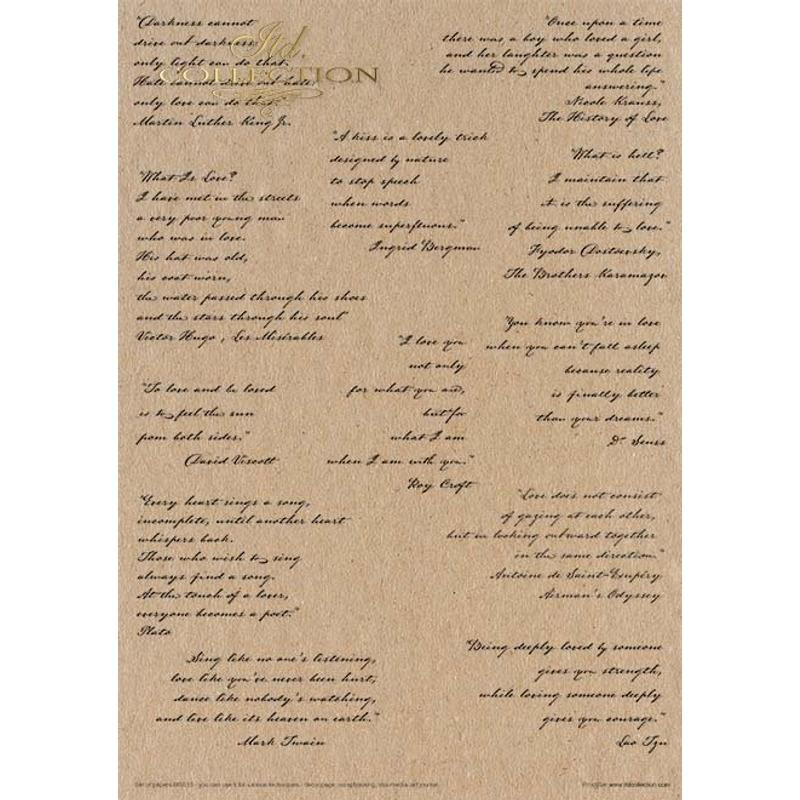 "Darkness cannot
drive out darkness:
only light can do that.
Hate cannot drive out hate,
only love can do that."
Martin Luther King Jr.
Itd.
COLLECTION
"Once upon a time
there was a boy who loved a girl,
and her laughter was a question
he wanted to spend his whole life
answering."
Nicole Krauss,
The History of Love
"A kiss is a lovely trick
designed by nature
to stop speech
when words
become superfluous."
Ingrid Bergman
"What is hell?
I maintain that
it is the suffering
of being unable to love."
Fyodor Dostoevsky,
The Brothers Karamazov
"What Is Love?
I have met in the streets
a very poor young man
who was in love.
His hat was old,
his coat worn,
the water passed through his shoes
and the stars through his soul"
Victor Hugo, Les Misérables
"I love you
not only
for what you are,
but for
what I am
when I am with you."
Roy Croft
"You know you're in love
when you can't fall asleep
because reality
is finally better
than your dreams."
Dr. Seuss
"To love and be loved
is to feel the sun
from both sides."
David Viscott
"Every heart sings a song,
incomplete, until another heart
whispers back.
Those who wish to sing
always find a song.
At the touch of a lover,
everyone becomes a poet."
Plato
"Love does not consist
of gazing at each other,
but in looking outward together
in the same direction."
Antoine de Saint-Exupéry
Airman's Odyssey
"Sing like no one's listening,
love like you've never been hurt,
dance like nobody's watching,
and live like its heaven on earth."
Mark Twain
"Being deeply loved by someone
gives you strength,
while loving someone deeply
gives you courage."
Lao Tzu
you can use it for various techniques - decoupage, scrapbooking, mix-media art journal
www.itdcollection.com